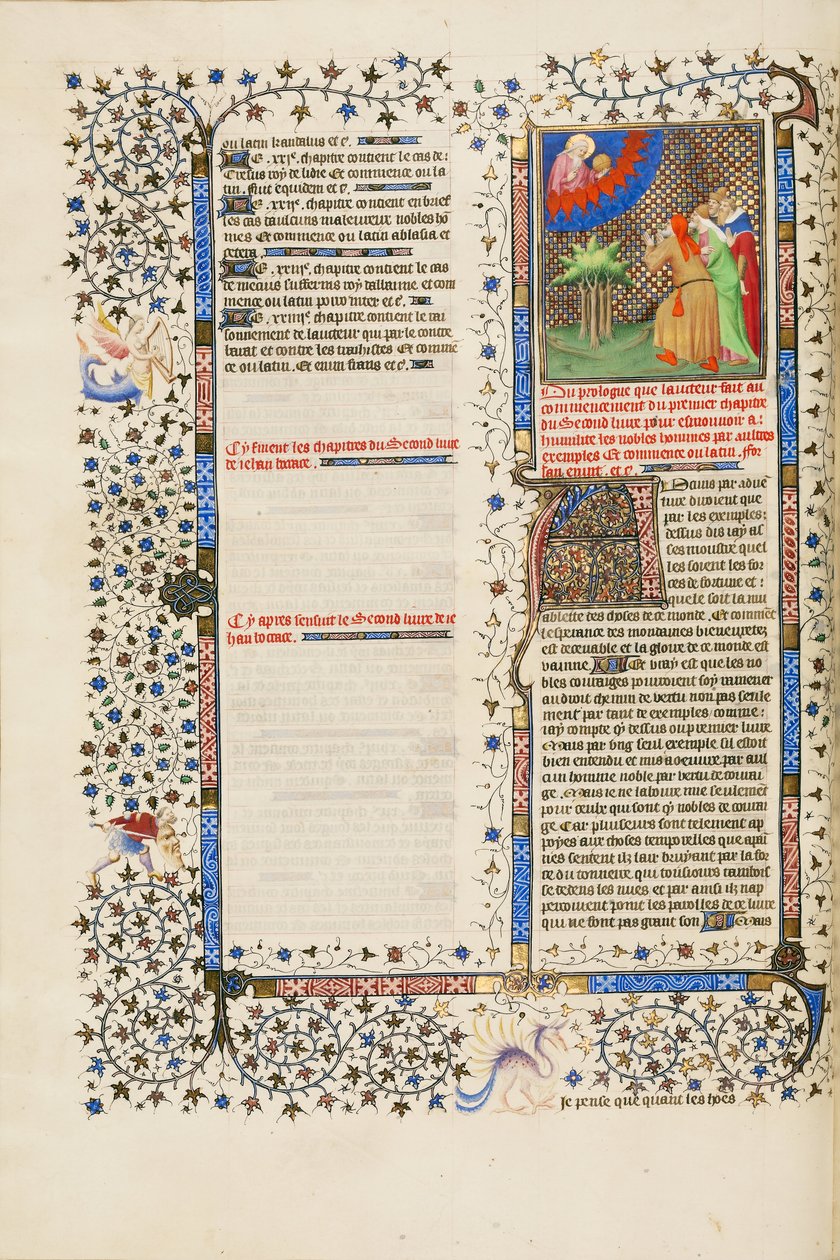 ou latin kandalus et c̃.
LE .xxiie. chapitre contient le cas de:
Cresus roy de lidie Et commence ou la
tin. fuit equidem et c̃.
LE .xxiie. chapitre contient en brief
les cas daulcuns maleureux nobles hõ
mes Et commence ou latin ablasia et
cetera.
LE .xxiiie. chapitre contient le cas
de mecius suffecius roy dallanie. et com
mence ou latin
LE .xxiiiie. chapitre contient le rai
sonnement de lauteur qui parle contre
barat et contre les Et commẽ
ce ou latin. Et enim fraus et c̃.
Cy finent les chapitres du Second liure
de iehan bocace.
Cy apres sensuit le Second liure de ie
han bocace.
Du prologue que lauteur fait au
commencement du premier chapitre
du Second liure pour esmouuoir a:
humilite les nobles hommes par aultres
exemples Et commence ou latin. ffor
san erunt. et c̃.
Alcuns par aduẽ
ture diroient que
par les exemples:
dessus dis iay as
ses moustre quel
les soient les for
ces de fortune et:
quele soit la mu
ablete des choses de ce monde. Et commẽt
lesperance des mondaines bieneuretez
est deceuable et la gloire de ce monde est
vainne. Et vray est que les no
bles couraiges pourroient soy ramener
au droit chemin de vertu non pas seule
ment par tant de exemples comme:
iay compte cy dessus ou premier liure
Mais par vng seul exemple sil estoit
bien entendu et mis a oeuure par aul
cun homme noble par vertu de courai
ge. Mais ie ne laboure mie seulement
pour ceulx qui sont cy nobles de courai
ge Car pluseurs sont telement ap
poyes aux choses temporelles que a pai
nes sentent ilz lair bruyant par la for
ce du tonnerre qui tousiours
se dedens les nues et par ainsi ilz nap
percoiuent point les parolles de ce liure
qui ne font pas grant son Mais
Je pense que quant les hões